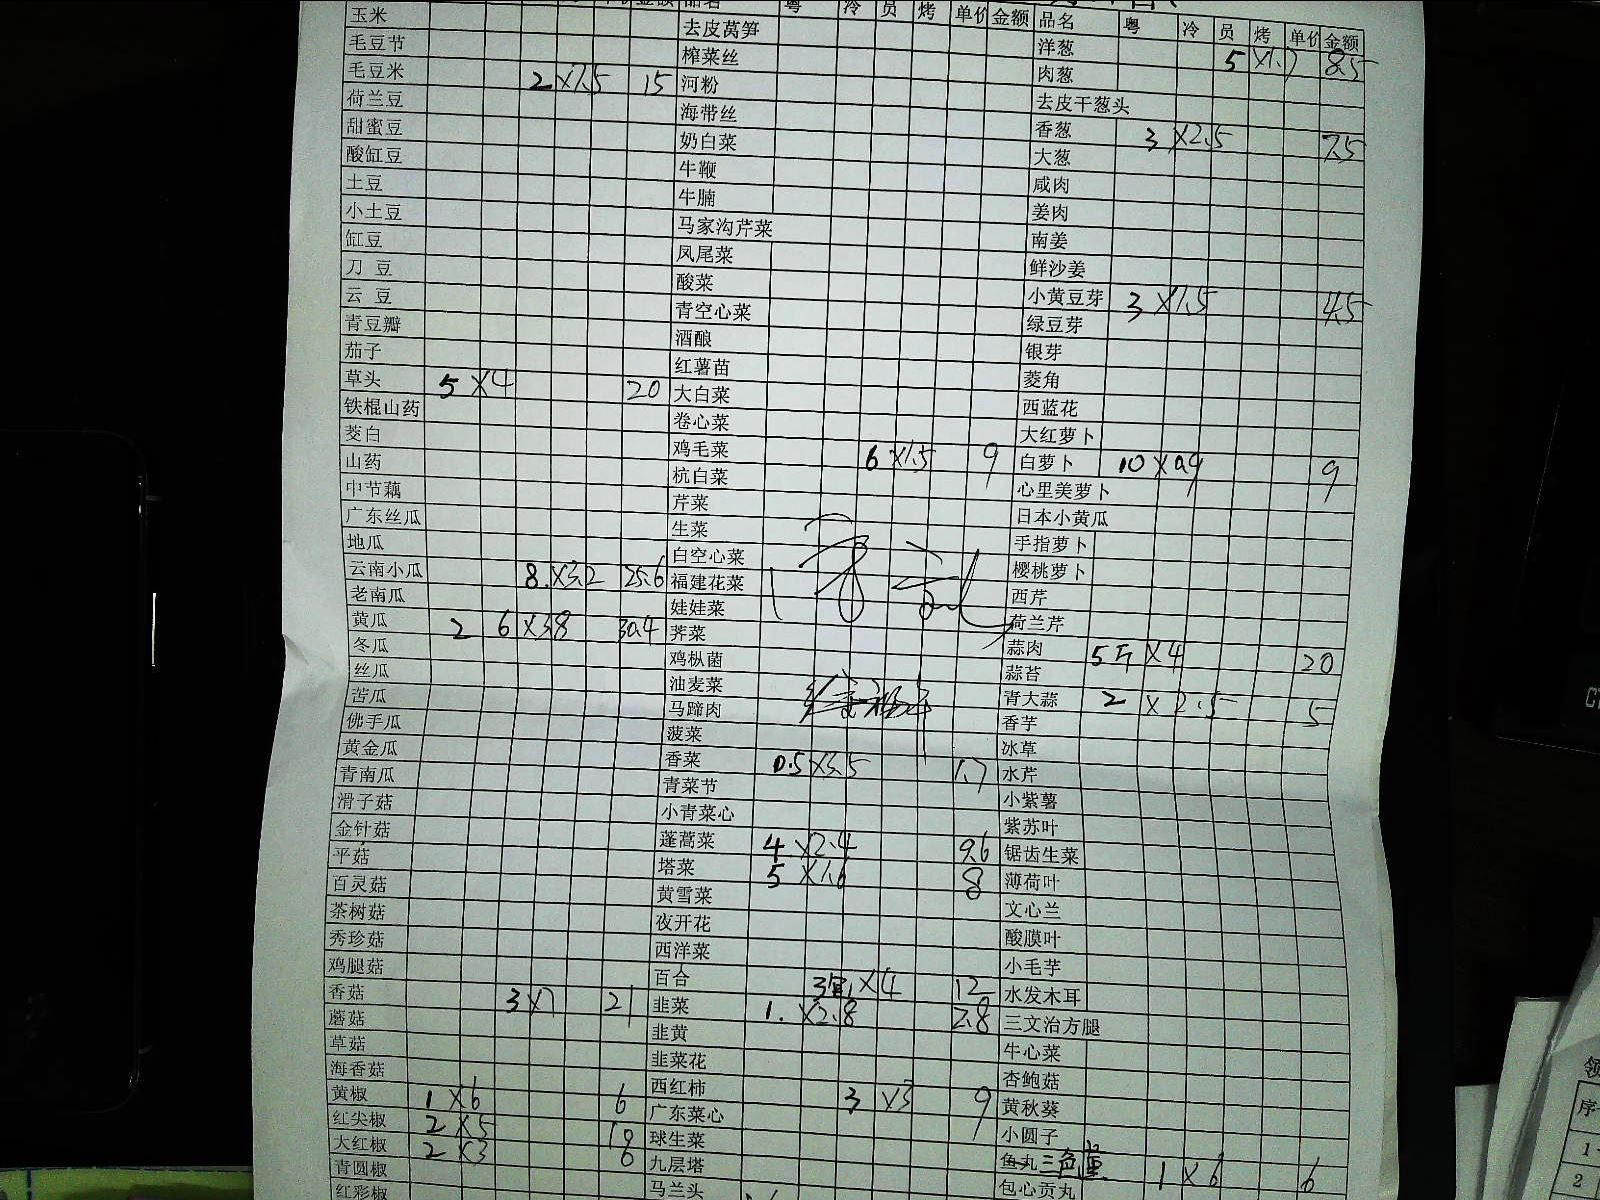 玉米
毛豆节
毛豆米 2 ×7.5 15
荷兰豆
甜蜜豆
酸缸豆
土豆
小土豆
缸豆
刀 豆
云 豆
青豆瓣
茄子
草头 5 ×4 20
铁棍山药
茭白
山药
中节藕
广东丝瓜
地瓜
云南小瓜 8. ×3.2 25.6
老南瓜
黄瓜 2 6 ×3.8 30.4
冬瓜
丝瓜
苦瓜
佛手瓜
黄金瓜
青南瓜
滑子菇
金针菇
平菇
百灵菇
茶树菇
秀珍菇
鸡腿菇
香菇 3 ×7 21
蘑菇
草菇
海香菇
黄椒 1 ×6 6
红尖椒 2 ×5 10
大红椒 2 ×3 6
青圆椒
红彩椒
品名 粤 冷 员 烤 单价 金额
去皮莴笋
榨菜丝
河粉
海带丝
奶白菜
牛鞭
牛腩
马家沟芹菜
凤尾菜
酸菜
青空心菜
酒酿
红薯苗
大白菜
卷心菜
鸡毛菜 6 ×1.5 9
杭白菜
芹菜
生菜
白空心菜
福建花菜
娃娃菜
荠菜
鸡枞菌
油麦菜
马蹄肉
菠菜
香菜 0.5 ×3.5 1.7
青菜节
小青菜心
蓬蒿菜 4 ×2.4 9.6
塔菜 5 ×1.6 8
黄雪菜
夜开花
西洋菜
百合 ×4 12
韭菜 1. ×2.8 2.8
韭黄
韭菜花
西红柿 3 ×3 9
广东菜心
球生菜
九层塔
马兰头
品名 粤 冷 员 烤 单价 金额
洋葱 5 ×1.7 8.5
肉葱
去皮干葱头
香葱 3 ×2.5 7.5
大葱
咸肉
姜肉
南姜
鲜沙姜
小黄豆芽 3 ×1.5 4.5
绿豆芽
银芽
菱角
西蓝花
大红萝卜
白萝卜 10 ×0.9 9
心里美萝卜
日本小黄瓜
手指萝卜
樱桃萝卜
西芹
荷兰芹
蒜肉 5斤 ×4 20
蒜苔
青大蒜 2 ×2.5 5
香芋
冰草
水芹
小紫薯
紫苏叶
锯齿生菜
薄荷叶
文心兰
酸膜叶
小毛芋
水发木耳
三文治方腿
牛心菜
杏鲍菇
黄秋葵
小圆子
鱼丸 三色堇 1 ×6 6
包心贡丸
领
序
1
2